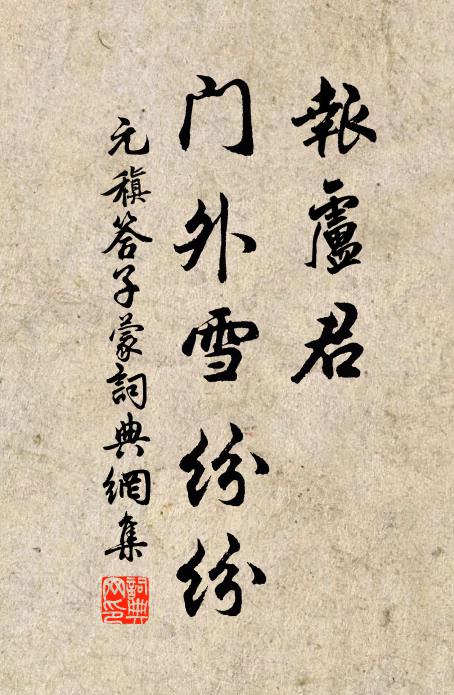 報盧君
门外雪纷纷
元稹答子蒙詞典網集
詞典网印